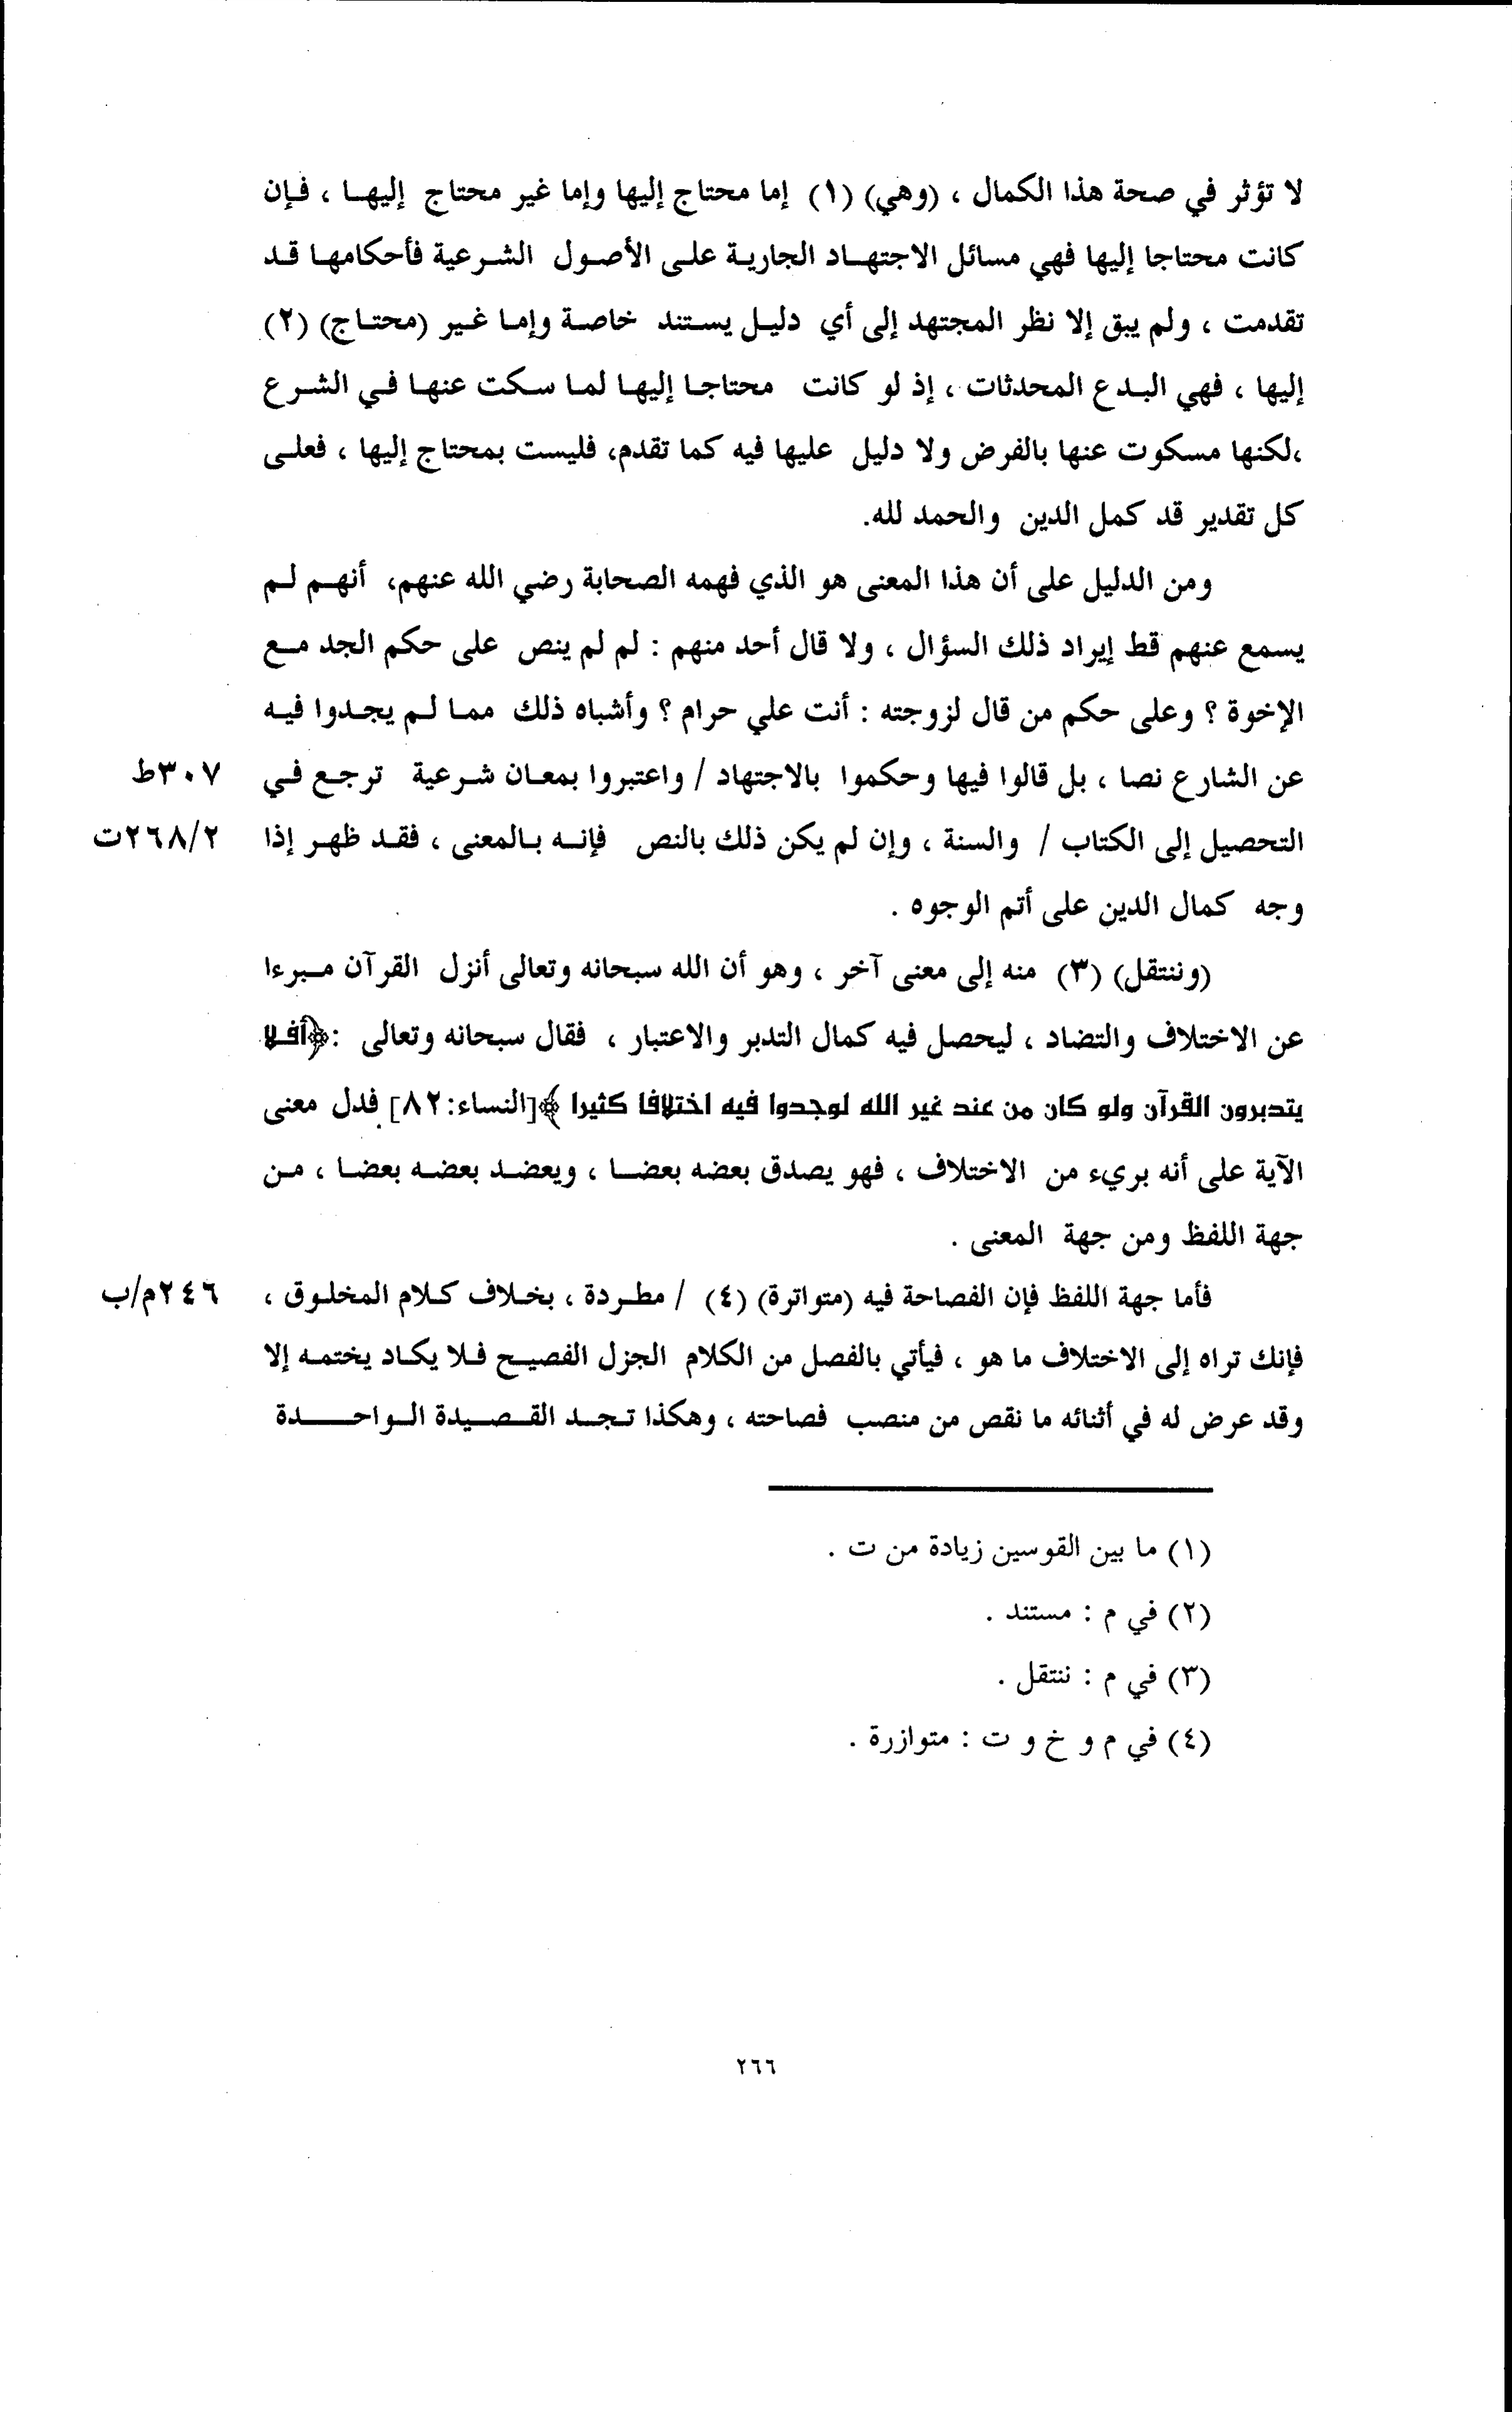 لا تؤثر في صحة هذا الكمال ، (وهي) (١) إما محتاج إليها وإما غير محتاج إليها ، فإن
كانت محتاجا إليها فهي مسائل الاجتهاد الجارية على الأصول الشرعية فأحكامها قد
تقدمت ، ولم يبق إلا نظر المجتهد إلى أي دليل يستند خاصة وإما غير (محتاج) (٢)
إليها ، فهي البدع المحدثات ، إذ لو كانت محتاجا إليها لما سكت عنها في الشرع
،لكنها مسكوت عنها بالفرض ولا دليل عليها فيه كما تقدم، فليست بمحتاج إليها ، فعلى
كل تقدير قد كمل الدين والحمد لله.
ومن الدليل على أن هذا المعنى هو الذي فهمه الصحابة رضي الله عنهم، أنهم لم
يسمع عنهم قط إيراد ذلك السؤال ، ولا قال أحد منهم : لم لم ينص على حكم الجد مع
الإخوة ؟ وعلى حكم من قال لزوجته : أنت علي حرام ؟ وأشباه ذلك مما لم يجدوا فيه
عن الشارع نصا ، بل قالوا فيها وحكموا بالاجتهاد / واعتبروا بمعان شرعية ترجع في ٣٠٧ط
التحصيل إلى الكتاب / والسنة ، وإن لم يكن ذلك بالنص فإنه بالمعنى ، فقد ظهر إذا ٢٦٨/٢ت
وجه كمال الدين على أتم الوجوه .
(وننتقل) (٣) منه إلى معنى آخر ، وهو أن الله سبحانه وتعالى أنزل القرآن مبرءا
عن الاختلاف والتضاد ، ليحصل فيه كمال التدبر والاعتبار ، فقال سبحانه وتعالى :﴿أفلا
يتدبرون القرآن ولو كان من عند غير الله لوجدوا فيه اختلافا كثيرا ﴾[النساء:٨٢] فدل معنى
الآية على أنه بريء من الاختلاف ، فهو يصدق بعضه بعضا ، ويعضد بعضه بعضا ، من
جهة اللفظ ومن جهة المعنى .
فأما جهة اللفظ فإن الفصاحة فيه (متواترة) (٤) / مطردة ، بخلاف كلام المخلوق ، ٢٤٦م/ب
فإنك تراه إلى الاختلاف ما هو ، فيأتي بالفصل من الكلام الجزل الفصيح فلا يكاد يختمه إلا
وقد عرض له في أثنائه ما نقص من منصب فصاحته ، وهكذا تجد القصيدة الواحدة
(١) ما بين القوسين زيادة من ت .
(٢) في م : مستند .
(٣) في م : ننتقل .
(٤) في م و خ و ت : متوازرة .
٢٦٦